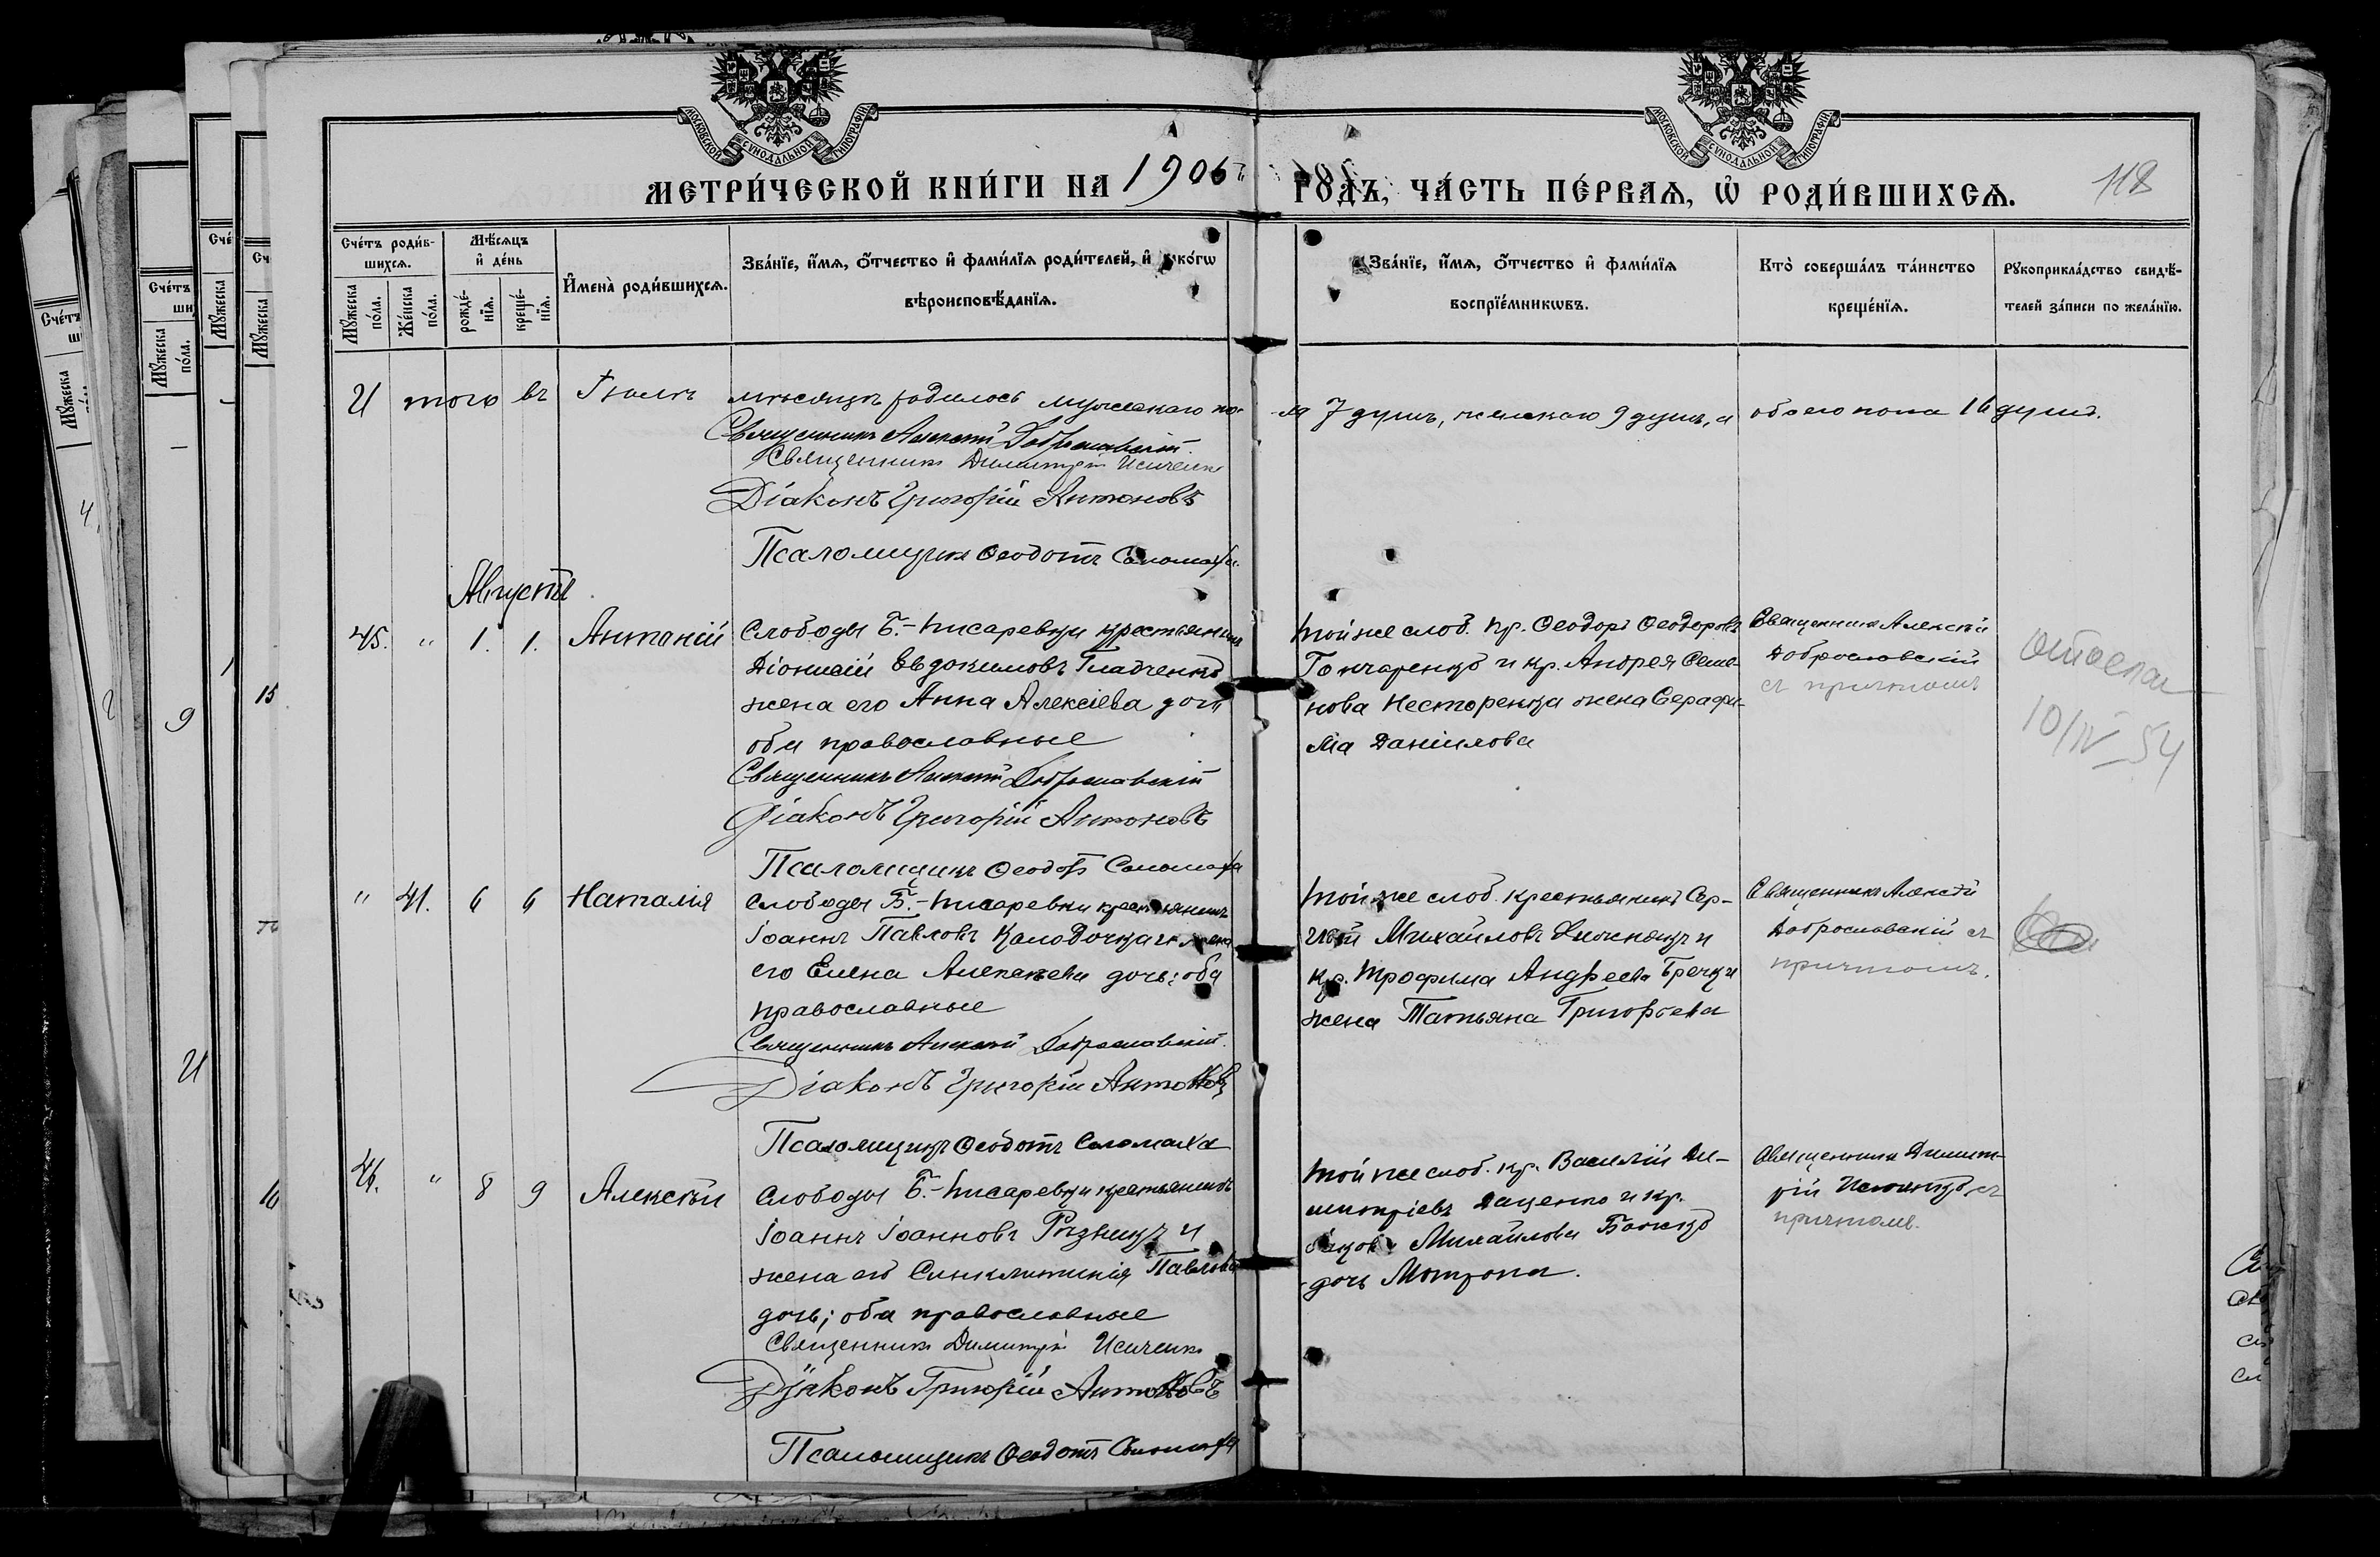 МОСКОВСКОЙ СѴНОДАЛЬНОЙ ТИПОГРАФІИ
МОСКОВСКОЙ СѴНОДАЛЬНОЙ ТИПОГРАФІИ
МЕТРИ́ЧЕСКОЙ КНИ́ГИ НА 1906 ГО́ДЪ, ЧА́СТЬ ПЕ́РВАѦ, Ѡ҆ РОДИ́ВШИХСѦ.
118
Сче́тъ роди́в-
шихсѧ.
Мꙋ́жеска по́ла.
Же́нска по́ла.
Мѣ́сѧцъ
и҆ де́нь
рожде́-
нїѧ.
креще́-
нїѧ.
И҆мена̀ роди́вшихсѧ.
Зва́нїе, и҆́мѧ, ѻ҆́тчество и҆ фами́лїѧ роди́телей, и҆ како́гѡ
вѣроисповѣ́данїѧ.
Зва́нїе, и҆́мѧ, ѻ҆́тчество и҆ фами́лїѧ
воспрїе́мникѡвъ.
Кто̀ соверша́лъ та́инство
креще́нїѧ.
Рꙋкоприкла́дство свидѣ́-
телей за́писи по жела́нїю.
И того въ Іюлѣ мѣсяцѣ родилось мужескаго по- ла 7 душъ, женскаго 9 душъ, а обоего пола 16 душъ.
Священникъ Алексѣй Доброславскій.
Священникъ Димитрій Исиченко
Діаконъ Григорій Антоновъ
Псаломщикъ Ѳеодотъ Соломаха
Августъ
45. " 1. 1. Антоній
Слободы Б.-Писаревки крестьянинъ
Діонисій Евдокимовъ Гладченко
жена его Анна Алексіева дочь
оба православные
Священникъ Алексѣй Доброславскій
Діаконъ Григорій Антоновъ
Псаломщикъ Ѳеодотъ Соломаха
Той же слоб. кр. Ѳеодоръ Ѳеодоровъ
Гончаренко и кр. Андрея Семе-
нова Несторенка жена Серафи-
ма Даніилова
Священникъ Алексѣй
Доброславскій
съ причтомъ
10/IV 54
" 41. 6 6 Наталія
Слободы Б.-Писаревки крестьянинъ
Іоаннъ Павловъ Колодочка и жена
его Елена Алексѣева дочь; оба
православные
Священникъ Алексѣй Доброславскій.
Діаконъ Григорій Антоновъ
Псаломщикъ Ѳеодотъ Соломаха
Той же слоб. крестьянинъ Сер-
гій Михайловъ и
кр. Трофима Андреева Гречки
жена Татьяна Григорьева
Священникъ Алексѣй
Доброславскій съ
причтомъ.
46. " 8 9 Алексѣй
Слободы Б.-Писаревки крестьянинъ
Іоаннъ Іоанновъ Рѣзникъ и
жена его Синклитикія Павлова
дочь; оба православные
Священникъ Димитрій Исиченко
Діаконъ Григорій Антоновъ
Псаломщикъ Ѳеодотъ Соломаха
Той же слоб. кр. Василій Ди-
митріевъ Даценко и кр.
Михайлова
дочь Матрона.
Священникъ Димит-
рій Исиченко съ
причтомъ.